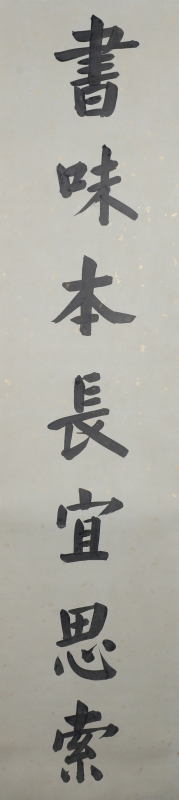 書味本長宜思索